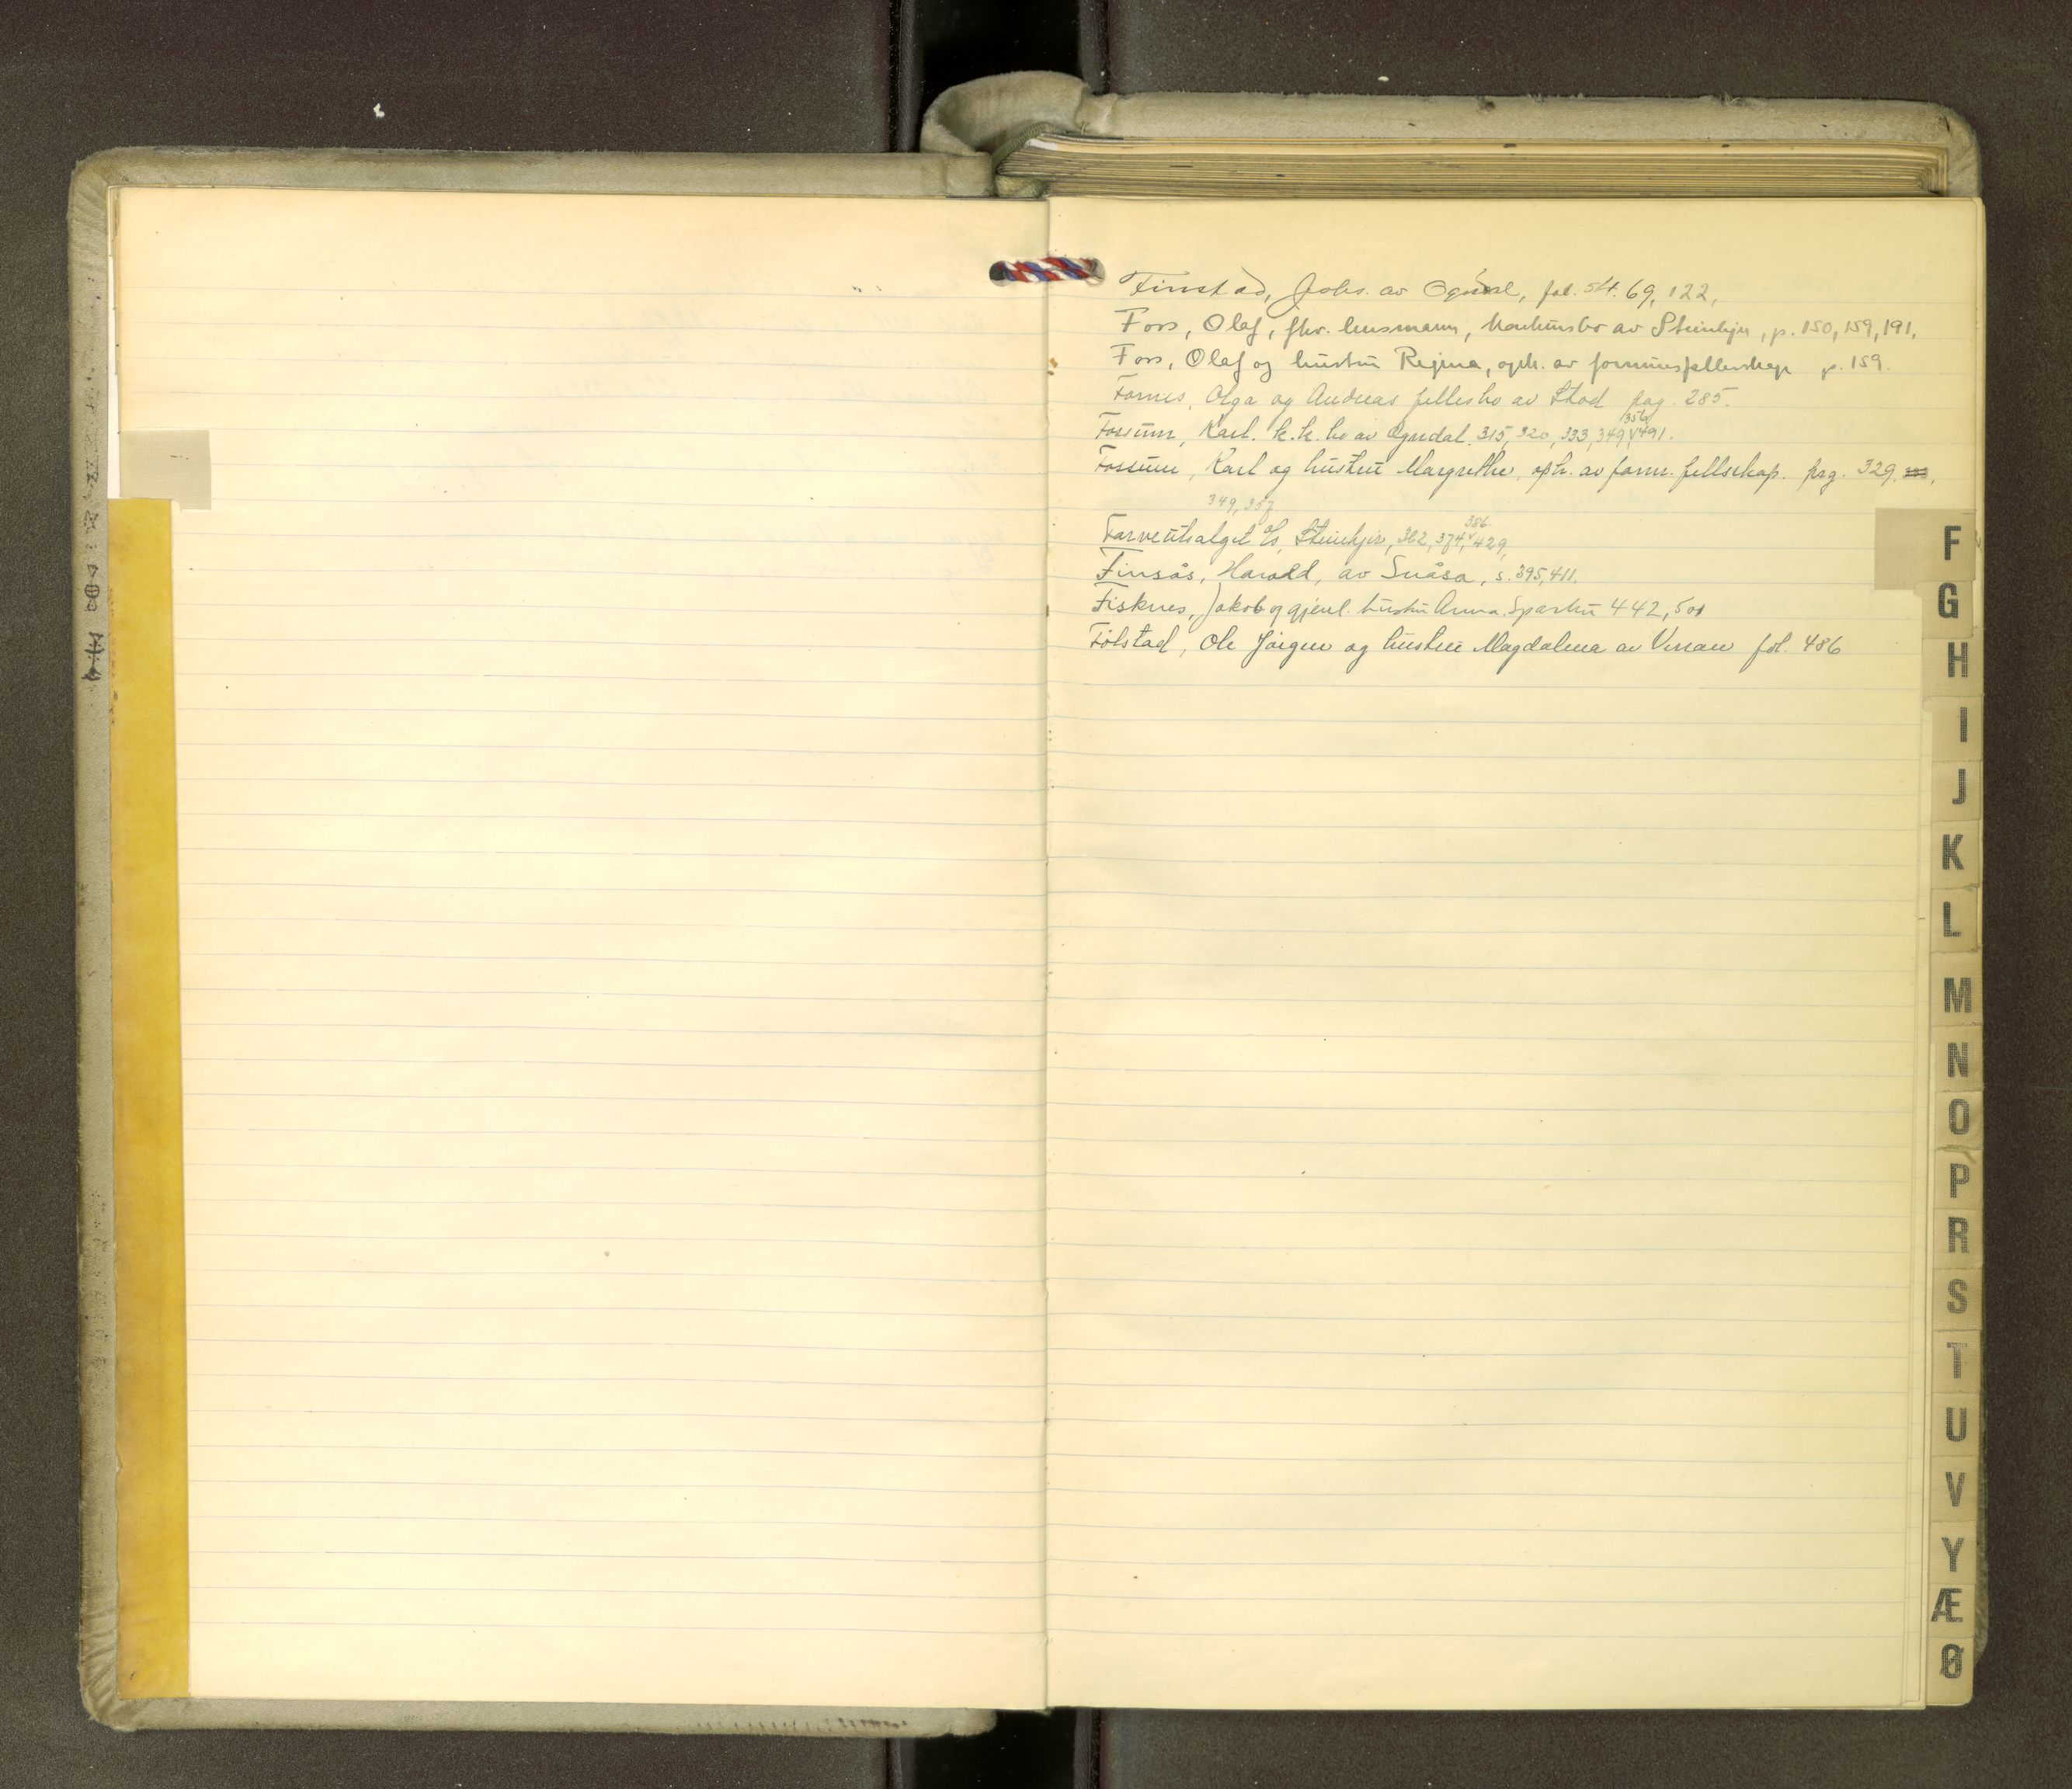 Finstad, Johs. av Ogndal, fol. 54. 69, 122,
Foss, Olaf, fhv. lensmann, konkursbo av Steinkjer, p. 150, 159, 191.
Foss, Olaf og hustru Regina, oph. av formuesfellesskap p. 159.
Fornes, Olga og Andreas fellesbo av Stod pag. 285.
356
Fossum, Karl. k.k. bo av Ogndal. 315, 320, 333, 349, 491.
Fossum, Karl og hustru Margrethe, oph. av form. fellsskap. pag. 329.
349, 357
386
Farveutsalget A/S, Steinkjer, 362, 374, 429,
Finsås, Harald, av Snåsa, s. 395, 411.
Fisknes, Jakob og gjenl. hustru Anna. Sparbu 442, 501
Følstad, Ole Jørgen og hustru Magdalena av Verran fol. 486
F
G
H
I
J
K
L
M
N
O
P
R
S
T
U
V
Y
Æ
Ø